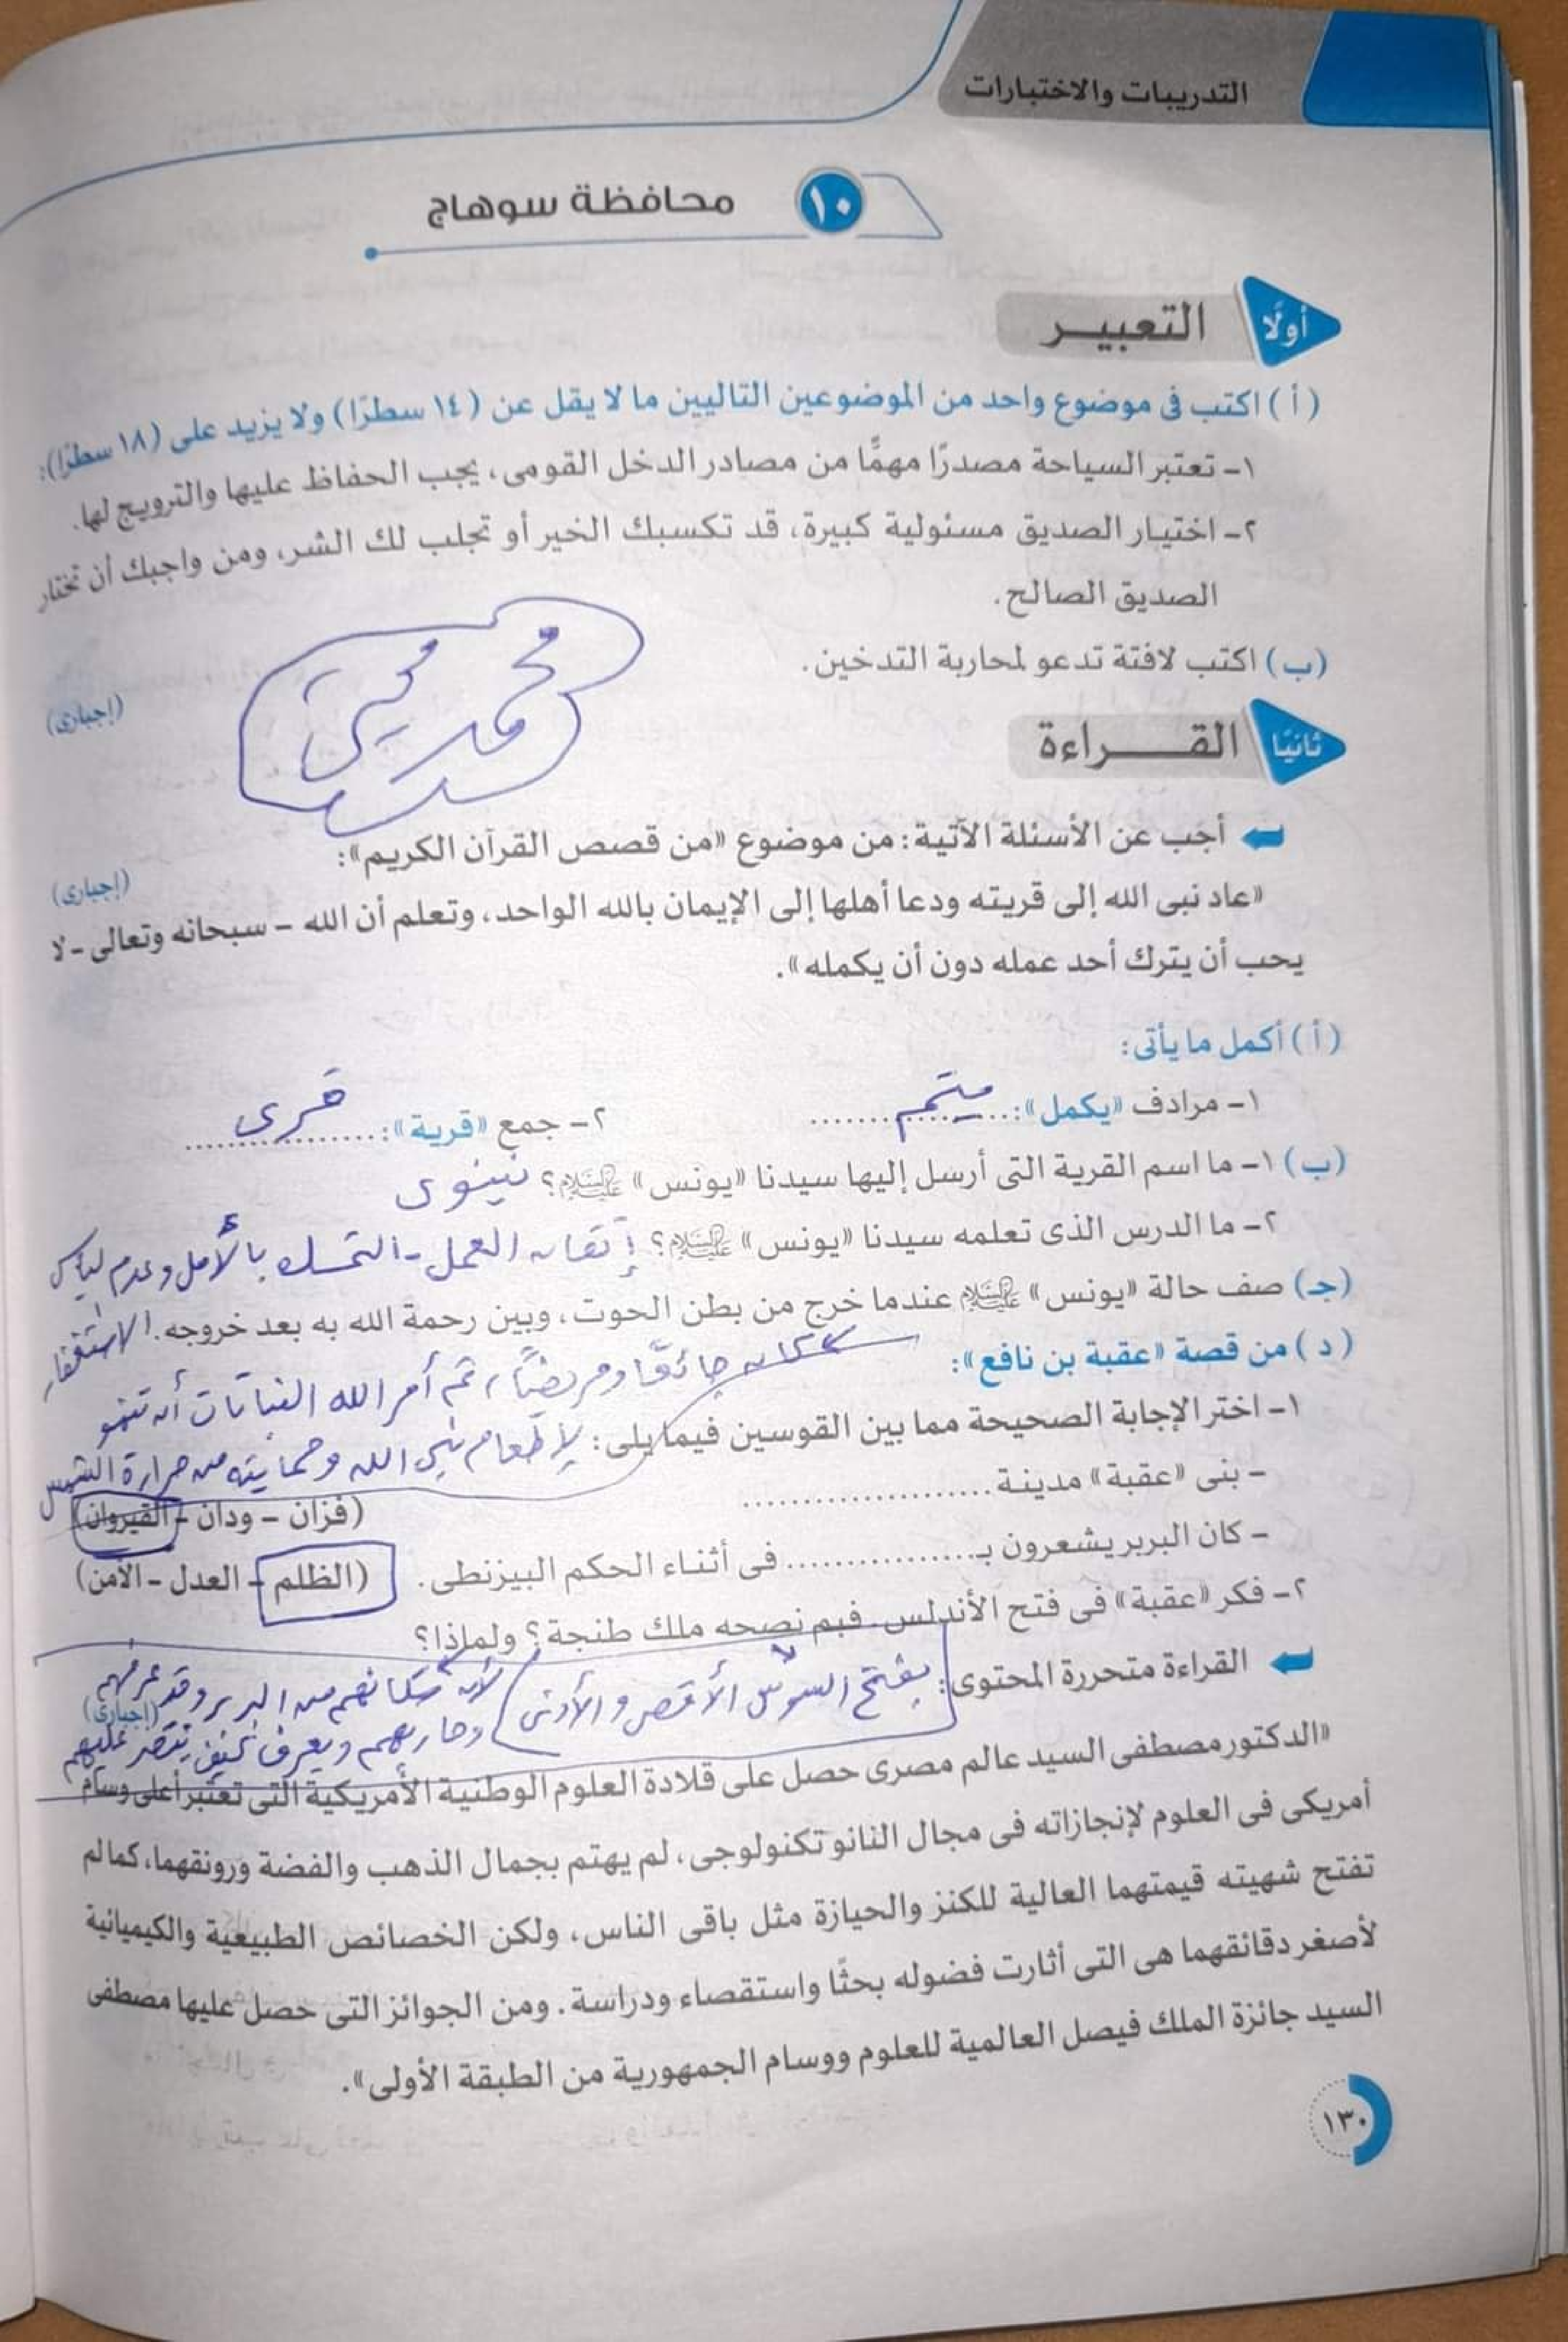 التدريبات والاختبارات
١٠ محافظة سوهاج
أولًا التعبير
( أ ) اكتب فى موضوع واحد من الموضوعين التاليين ما لا يقل عن (١٤ سطرًا) ولا يزيد على (١٨ سطرًا):
١- تعتبر السياحة مصدرًا مهمًّا من مصادر الدخل القومى، يجب الحفاظ عليها والترويج لها.
٢- اختيار الصديق مسئولية كبيرة، قد تكسبك الخير أو تجلب لك الشر، ومن واجبك أن تختار
الصديق الصالح.
(ب) اكتب لافتة تدعو لمحاربة التدخين.
(إجبارى)
محمد
ثانيًا القــــراءة
أجب عن الأسئلة الآتية: من موضوع «من قصص القرآن الكريم»:
(إجبارى)
«عاد نبى الله إلى قريته ودعا أهلها إلى الإيمان بالله الواحد، وتعلم أن الله - سبحانه وتعالى - لا
يحب أن يترك أحد عمله دون أن يكمله».
( أ ) أكمل ما يأتى:
١- مرادف «يكمل»: يتمم ٢- جمع «قرية»: قرى
(ب) ١- ما اسم القرية التى أرسل إليها سيدنا «يونس» عليه السلام؟ نينوى
٢- ما الدرس الذى تعلمه سيدنا «يونس» عليه السلام؟ إتقان العمل - التمسك بالأمل وعدم اليأس
الاستغفار
(جـ) صف حالة «يونس» عليه السلام عندما خرج من بطن الحوت، وبين رحمة الله به بعد خروجه.
كان جائعًا ومريضًا، ثم أمر الله النباتات أن تنمو
( د ) من قصة «عقبة بن نافع»:
لإطعام نبي الله وحمايته من حرارة الشمس
١- اختر الإجابة الصحيحة مما بين القوسين فيما يلى:
- بنى «عقبة» مدينة .................... (فزان - ودان - القيروان)
- كان البربر يشعرون بـ ................ فى أثناء الحكم البيزنطى. (الظلم - العدل - الأمن)
٢- فكر «عقبة» فى فتح الأندلس. فبم نصحه ملك طنجة؟ ولماذا؟
بفتح السوس الأقصى والأدنى لأن سكانهم من البربر وقد عرفهم
وحاربهم ويعرف كيف ينتصر عليهم
القراءة متحررة المحتوى:
(إجبارى)
«الدكتور مصطفى السيد عالم مصرى حصل على قلادة العلوم الوطنية الأمريكية التى تعتبر أعلى وسام
أمريكى فى العلوم لإنجازاته فى مجال النانو تكنولوجى، لم يهتم بجمال الذهب والفضة ورونقهما، كما لم
تفتح شهيته قيمتهما العالية للكنز والحيازة مثل باقى الناس، ولكن الخصائص الطبيعية والكيميائية
لأصغر دقائقهما هى التى أثارت فضوله بحثًا واستقصاء ودراسة. ومن الجوائز التى حصل عليها مصطفى
السيد جائزة الملك فيصل العالمية للعلوم ووسام الجمهورية من الطبقة الأولى».
١٣٠